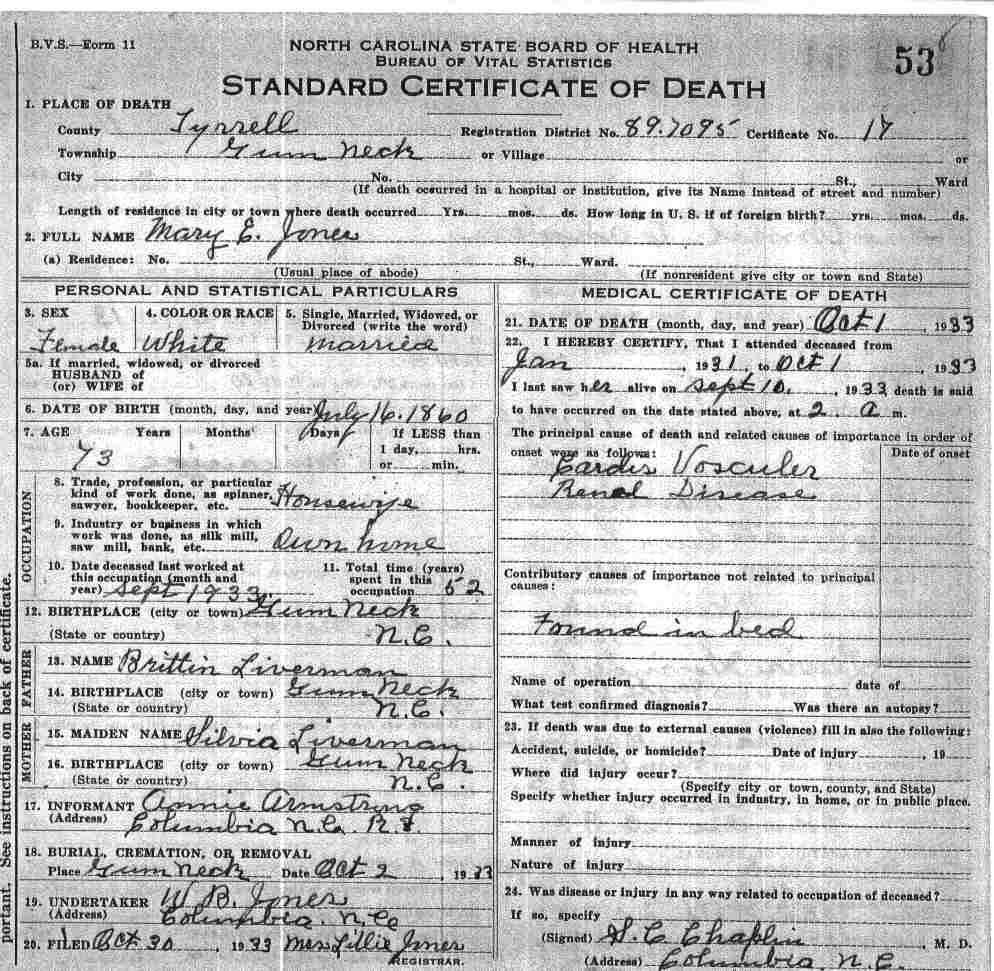 B.V.S.—Form 11
NORTH CAROLINA STATE BOARD OF HEALTH
BUREAU OF VITAL STATISTICS
53
STANDARD CERTIFICATE OF DEATH
1. PLACE OF DEATH
County Tyrrell Registration District No. 89.7095 Certificate No. 17
Township Gum Neck or Village or
City No. St., Ward
(If death occurred in a hospital or institution, give its Name instead of street and number)
Length of residence in city or town where death occurred Yrs. mos. ds. How long in U. S. if of foreign birth? yrs. mos. ds.
2. FULL NAME Mary E. Jones
(a) Residence: No. St., Ward.
(Usual place of abode) (If nonresident give city or town and State)
PERSONAL AND STATISTICAL PARTICULARS
3. SEX 4. COLOR OR RACE 5. Single, Married, Widowed, or
Divorced (write the word)
Female White Married
5a. If married, widowed, or divorced
HUSBAND of
(or) WIFE of
6. DATE OF BIRTH (month, day, and year) July 16. 1860
7. AGE Years Months Days If LESS than
1 day, hrs.
73 or min.
OCCUPATION
8. Trade, profession, or particular
kind of work done, as spinner,
sawyer, bookkeeper, etc. Housewife
9. Industry or business in which
work was done, as silk mill,
saw mill, bank, etc. Own home
10. Date deceased last worked at
this occupation (month and
year) Sept 1933.
11. Total time (years)
spent in this
occupation 52
12. BIRTHPLACE (city or town) Gum Neck
(State or country) N.C.
FATHER
13. NAME Brittin Liverman
14. BIRTHPLACE (city or town) Gum Neck
(State or country) N.C.
MOTHER
15. MAIDEN NAME Silvia Liverman
16. BIRTHPLACE (city or town) Gum Neck
(State or country) N.C.
17. INFORMANT Annie Armstrong
(Address) Columbia N.C.
18. BURIAL, CREMATION, OR REMOVAL
Place Gum Neck Date Oct 2, 1933
19. UNDERTAKER W B. Jones
(Address) Columbia, N.C.
20. FILED Oct 30, 1933 Mrs Lillie Jones
REGISTRAR.
MEDICAL CERTIFICATE OF DEATH
21. DATE OF DEATH (month, day, and year) Oct 1, 1933
22. I HEREBY CERTIFY, That I attended deceased from
Jan, 1931, to Oct 1, 1933
I last saw her alive on Sept 10., 1933, death is said
to have occurred on the date stated above, at 2. a m.
The principal cause of death and related causes of importance in order of
onset were as follows: Date of onset
Cardio Vosculer
Renal Disease
Contributory causes of importance not related to principal
causes:
Found in bed
Name of operation date of
What test confirmed diagnosis? Was there an autopsy?
23. If death was due to external causes (violence) fill in also the following:
Accident, suicide, or homicide? Date of injury, 19
Where did injury occur?
(Specify city or town, county, and State)
Specify whether injury occurred in industry, in home, or in public place.
Manner of injury
Nature of injury
24. Was disease or injury in any way related to occupation of deceased?
If so, specify
(Signed) Chaplin, M. D.
(Address) Columbia N.C.
portant. See instructions on back of certificate.